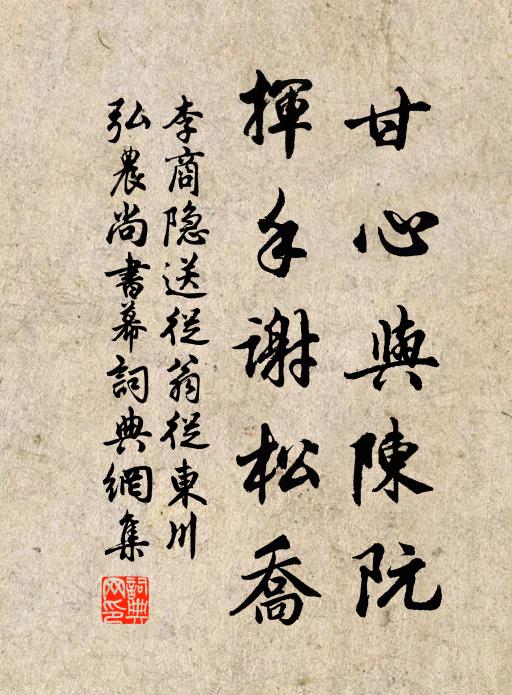 甘心與陳阮
揮手謝松喬
李商隐送從翁從東川
弘農尚書幕詞典網集
詞典網印